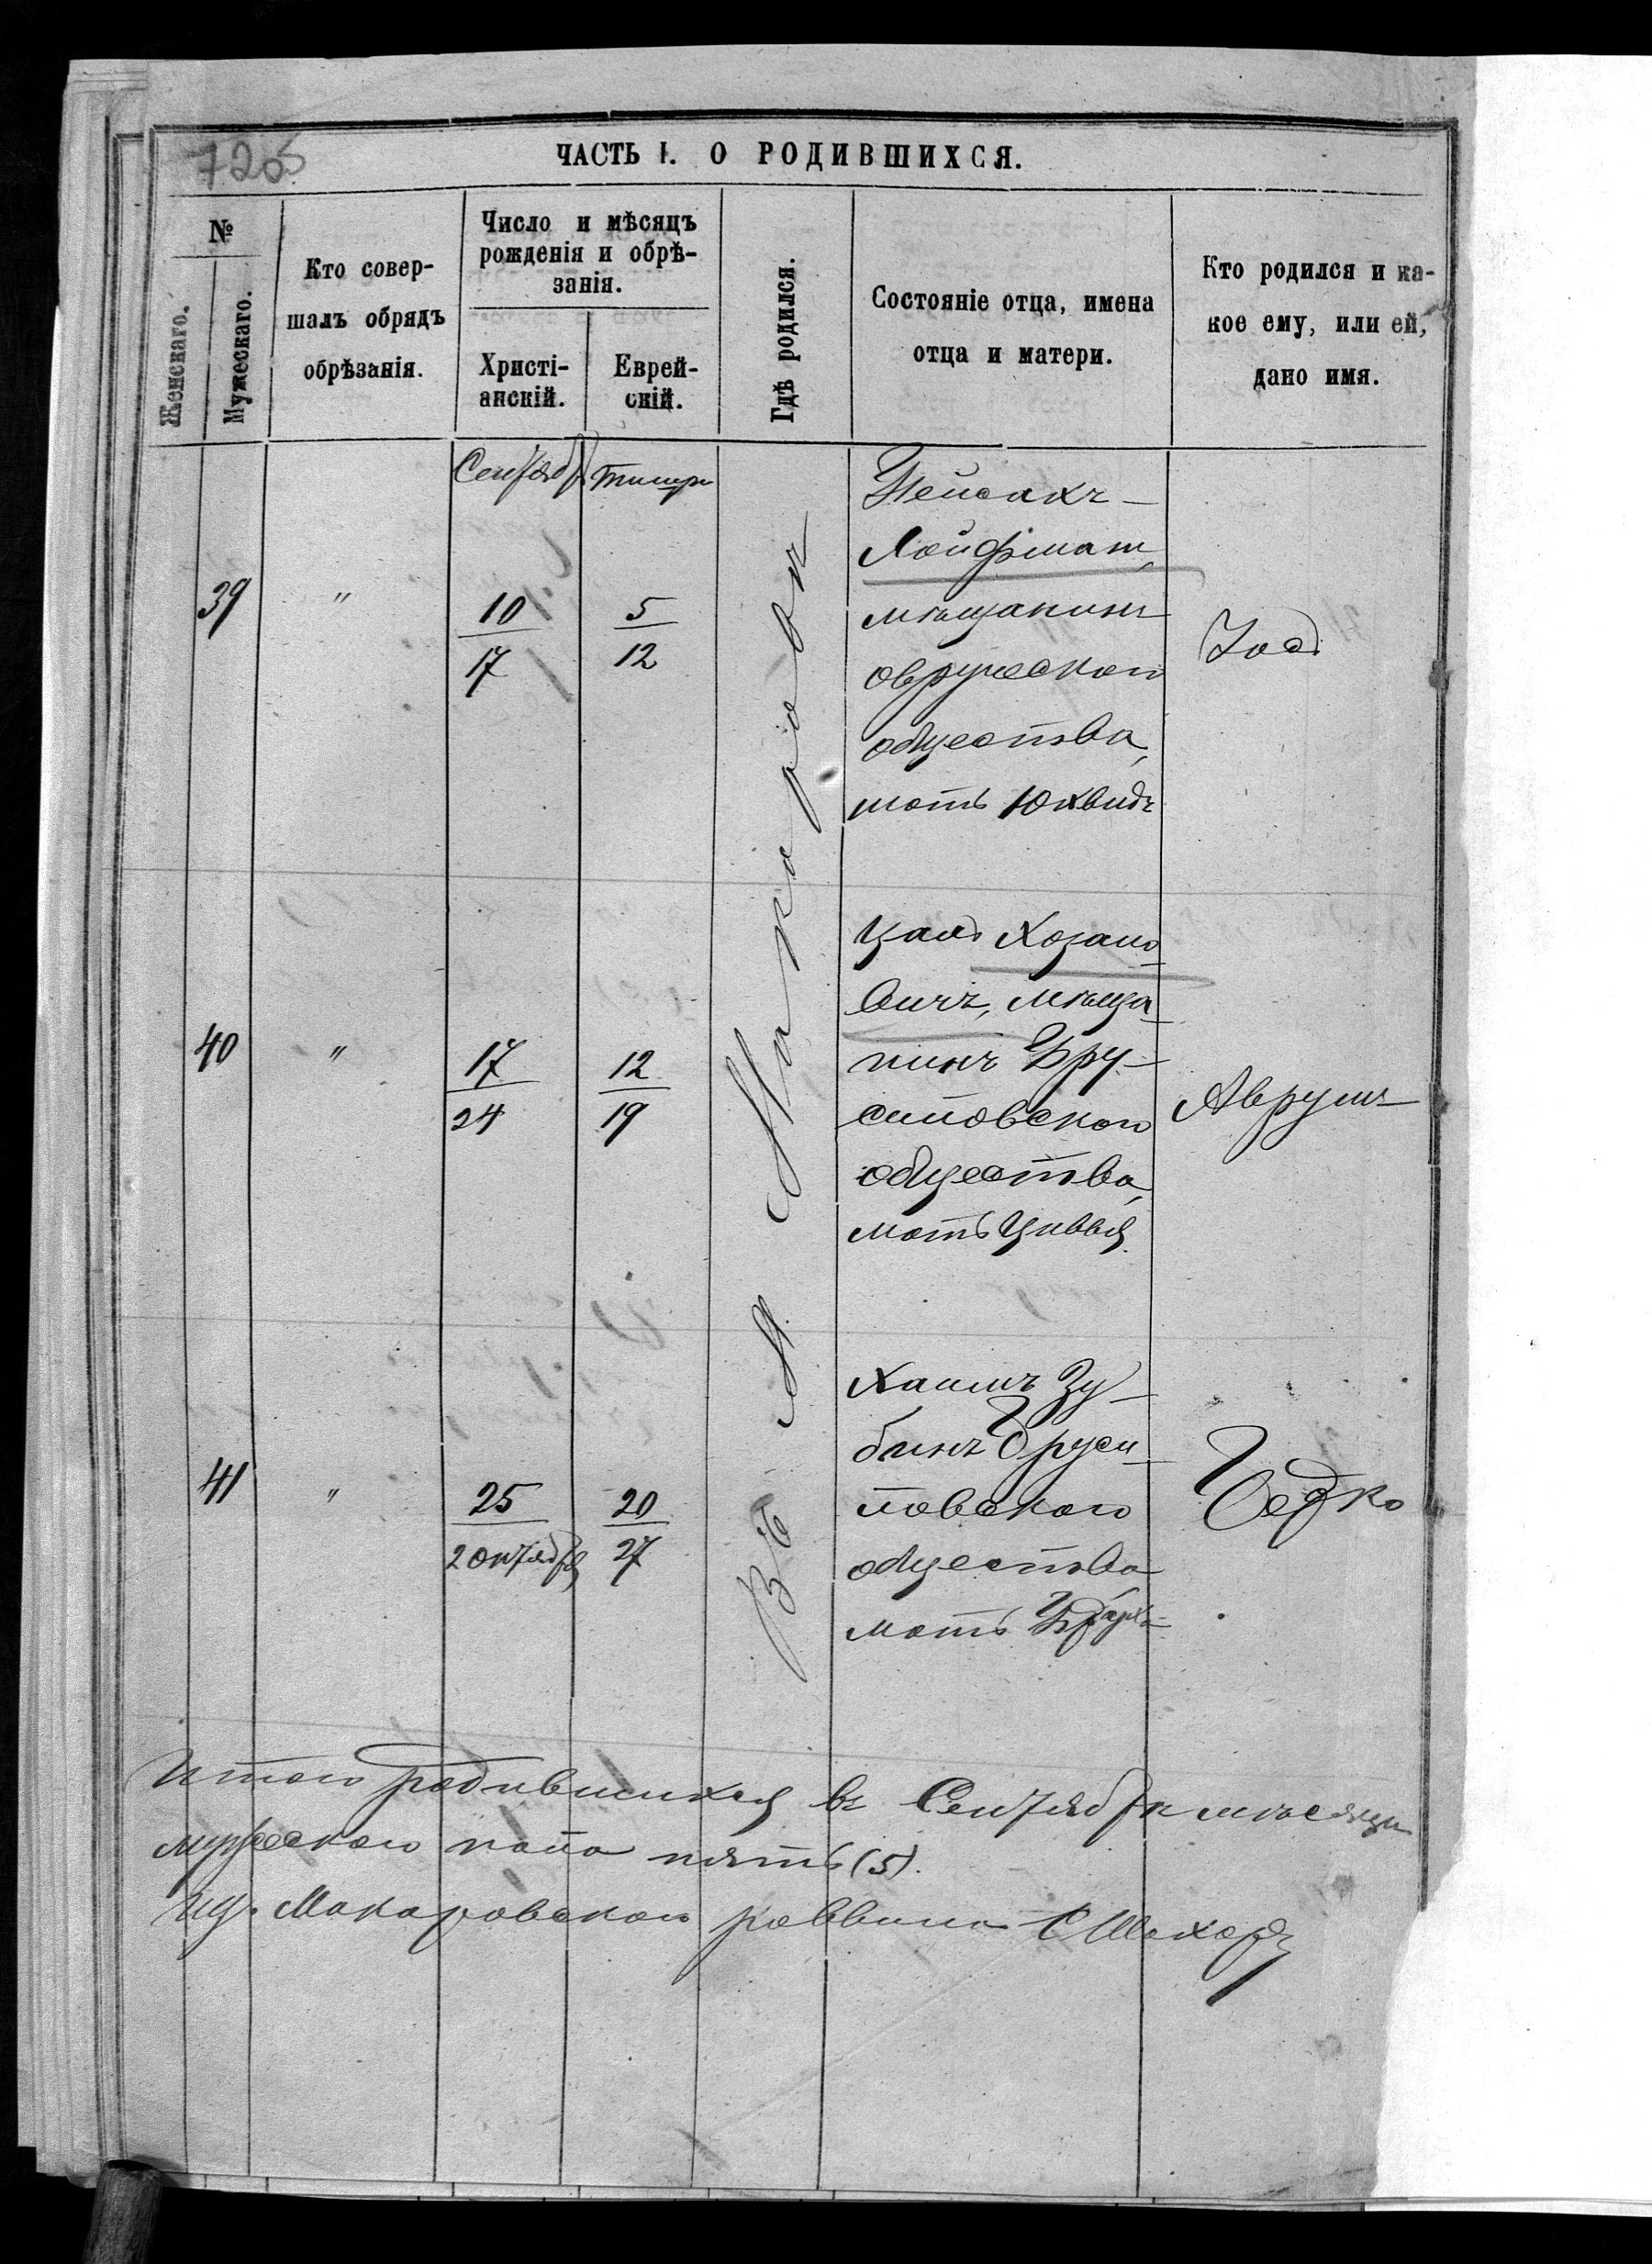 7205
ЧАСТЬ I. О РОДИВШИХСЯ.
№
Женскаго.
Мужескаго.
Кто совер-
шалъ обрядъ
обрѣзанія.
Число и мѣсяцъ
рожденія и обрѣ-
занія.
Христі-
анскій.
Еврей-
скій.
Гдѣ родился.
Состояніе отца, имена
отца и матери.
Кто родился и ка-
кое ему, или ей,
дано имя.
Сентябрь
Тишри
Въ М. Макаровѣ
39
"
10
17
5
12
Пейсахъ
Лойфманъ,
мѣщанинъ
овручскаго
общества,
мать Юхвидъ
Іос
40
"
17
24
12
19
Хазано
вичъ, мѣща
нинъ Бру-
силовскаго
общества,
мать Цивья
Аврумъ
41
"
25
2 октября
20
27
Хаимъ Зу-
бинъ Бруси
ловскаго
общества
мать
Берко
Итого родившихся въ Сентябрѣ мѣсяцѣ
мужескаго пола пять (5).
Макаровскаго раввина